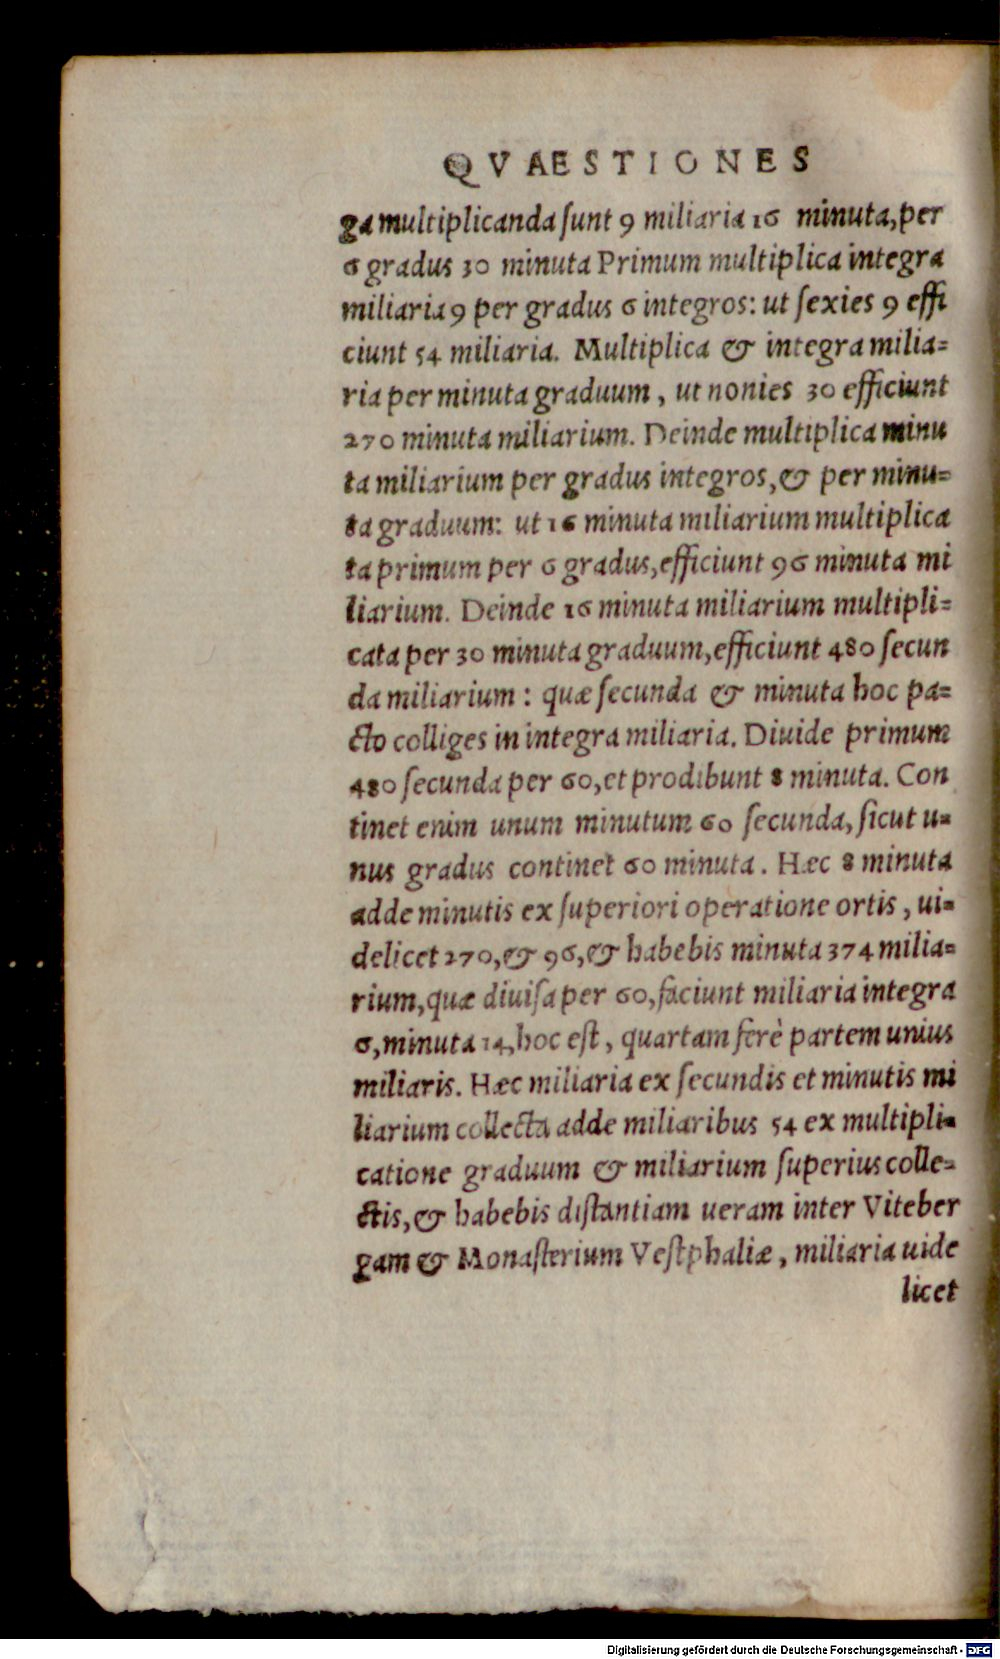 QVAESTIONES
ga multiplicanda ſunt 9 miliaria 16 minuta, per
6 gradus 30 minuta Primum multiplica integra
miliaria 9 per gradus 6 integros: ut ſexies 9 effi
ciunt 54 miliaria. Multiplica & integra milia=
ria per minuta graduum, ut nonies 30 efficiunt
270 minuta miliarium. Deinde multiplica minu
ta miliarium per gradus integros, & per minu=
ta graduum: ut 16 minuta miliarium multiplica
ta primum per 6 gradus, efficiunt 96 minuta mi
liarium. Deinde 16 minuta miliarium multipli=
cata per 30 minuta graduum, efficiunt 480 ſecun
da miliarium: quæ ſecunda & minuta hoc pa=
cto colliges in integra miliaria. Diuide primum
480 ſecunda per 60, et prodibunt 8 minuta. Con
tinet enim unum minutum 60 ſecunda, ſicut u=
nus gradus continet 60 minuta. Hæc 8 minuta
adde minutis ex ſuperiori operatione ortis, ui=
delicet 270, & 96, & habebis minuta 374 milia=
rium, quæ diuiſa per 60, faciunt miliaria integra
6, minuta 14, hoc eſt, quartam ferè partem unius
miliaris. Hæc miliaria ex ſecundis et minutis mi
liarium collecta adde miliaribus 54 ex multipli=
catione graduum & miliarium ſuperius colle=
ctis, & habebis diſtantiam ueram inter Viteber
gam & Monaſterium Veſtphaliæ, miliaria uide
licet
Digitalisierung gefördert durch die Deutsche Forschungsgemeinschaft - DFG